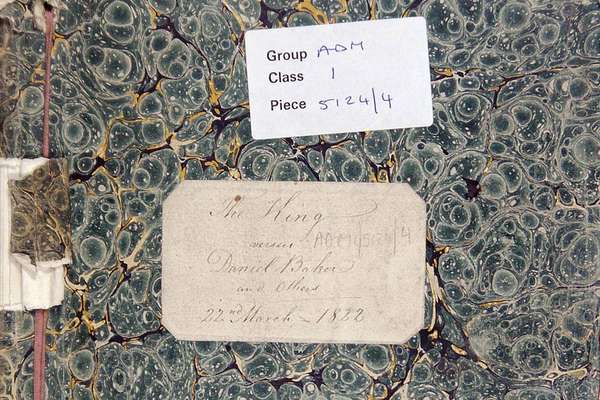 Group ADM
Class 1
Piece 5124/4
The King
versus
ADM 1/5124/4
Daniel Baker
and Others
22nd March - 1822